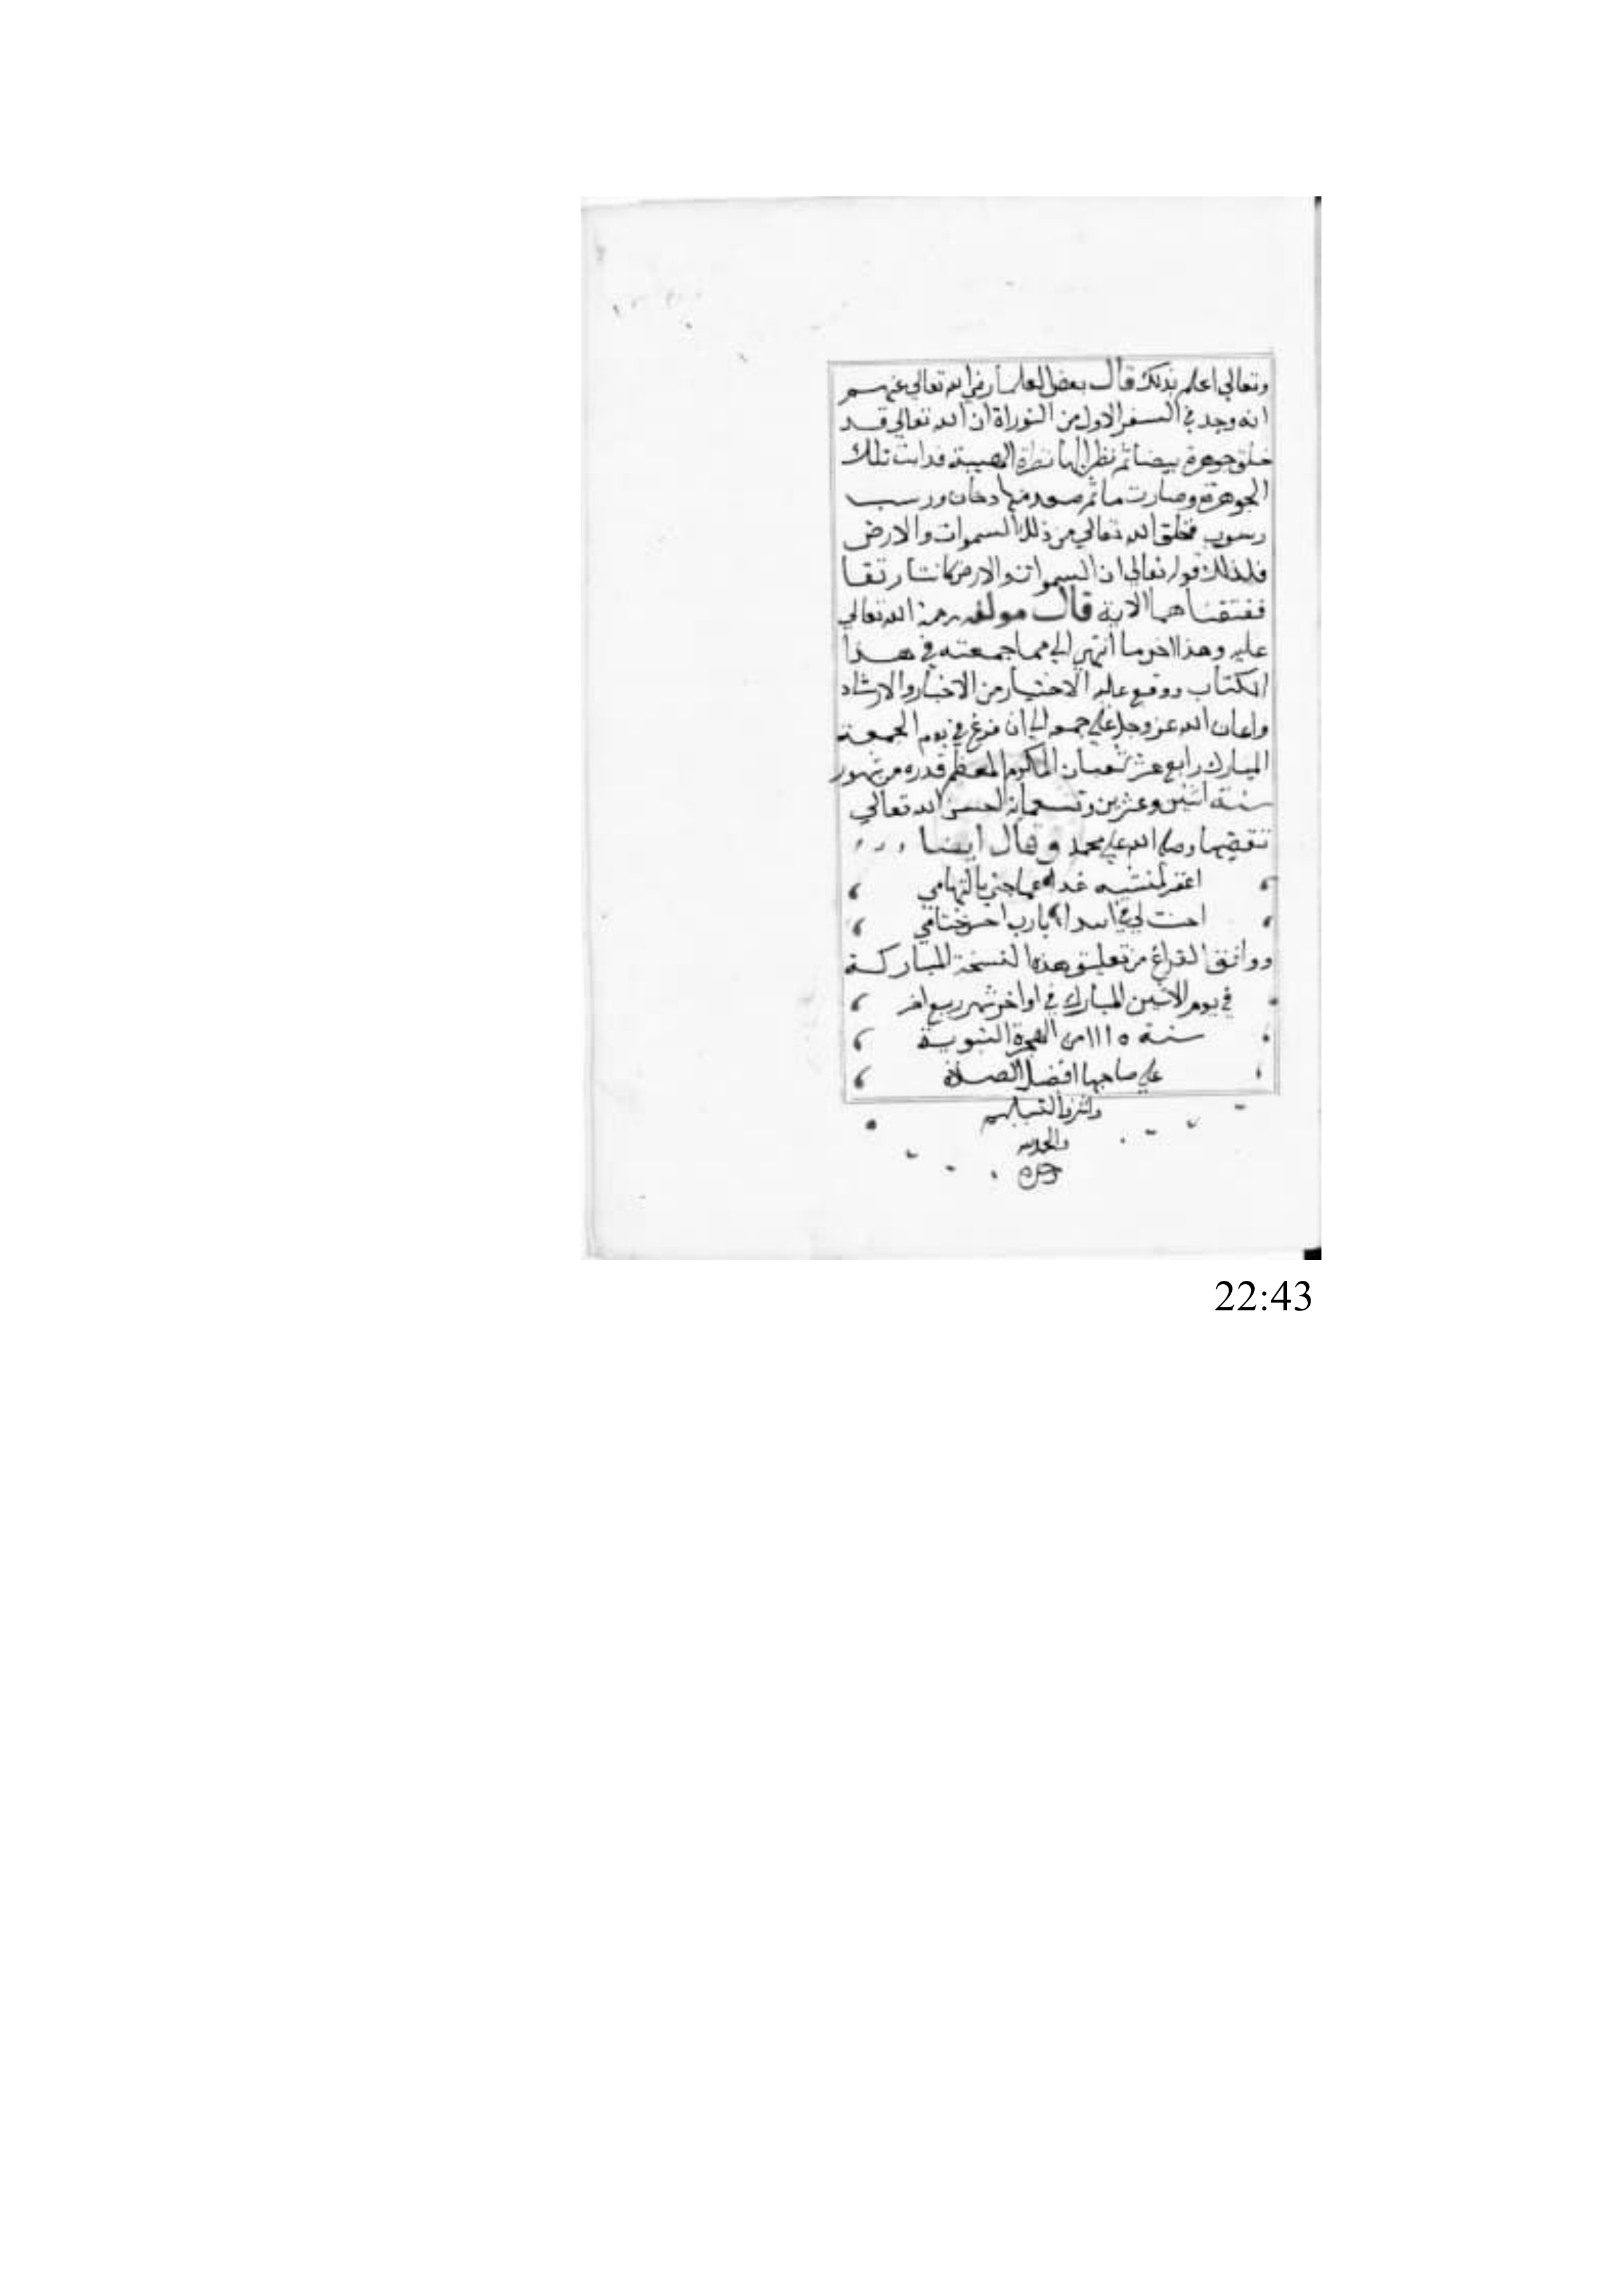 وتعالي اعلم بذلك قال بعض العلما رضي الله تعالي عنهم
انه وجد في السفر الاول من التوراة ان الله تعالي قد
خلق جوهرة بيضا ثم نظر اليها نظرة الهيبة فذابت تلك
الجوهرة وصارت ما ثم صعد منها دخان ورسب
رسوب فخلق الله تعالي من ذلك السموات والارض
فلذلك قوله تعالي ان السموات والارض كانتا رتقا
ففتقناهما الاية قال مولفه رحمة الله تعالي
عليه وهذا اخر ما انتهي الي مما جمعته في هذا
الكتاب ووقع عليه الاختيار من الاخبار والارشاد
واعان الله عز وجل علي جمعه الي ان فرغ في يوم الجمعة
المبارك رابع عشر شعبان المكرم المعظم قدره من شهور
سنة اثنين وعشرين وتسعماية احسن الله تعالي
تنقضيها وصلي الله علي محمد وقال ايضا
اغفر لمنشيه غدا عما جني بالتهامي
احسنت لي يا رب احسن ختامي
ووافق الفراغ من تعليق هذه النسخة المباركة
في يوم الاثنين المبارك في اواخر شهر ربيع اخر
سنة ١١١٥ من الهجرة النبوية
علي صاحبها افضل الصلاة
واشرف التسليم
والحمد لله
22:43